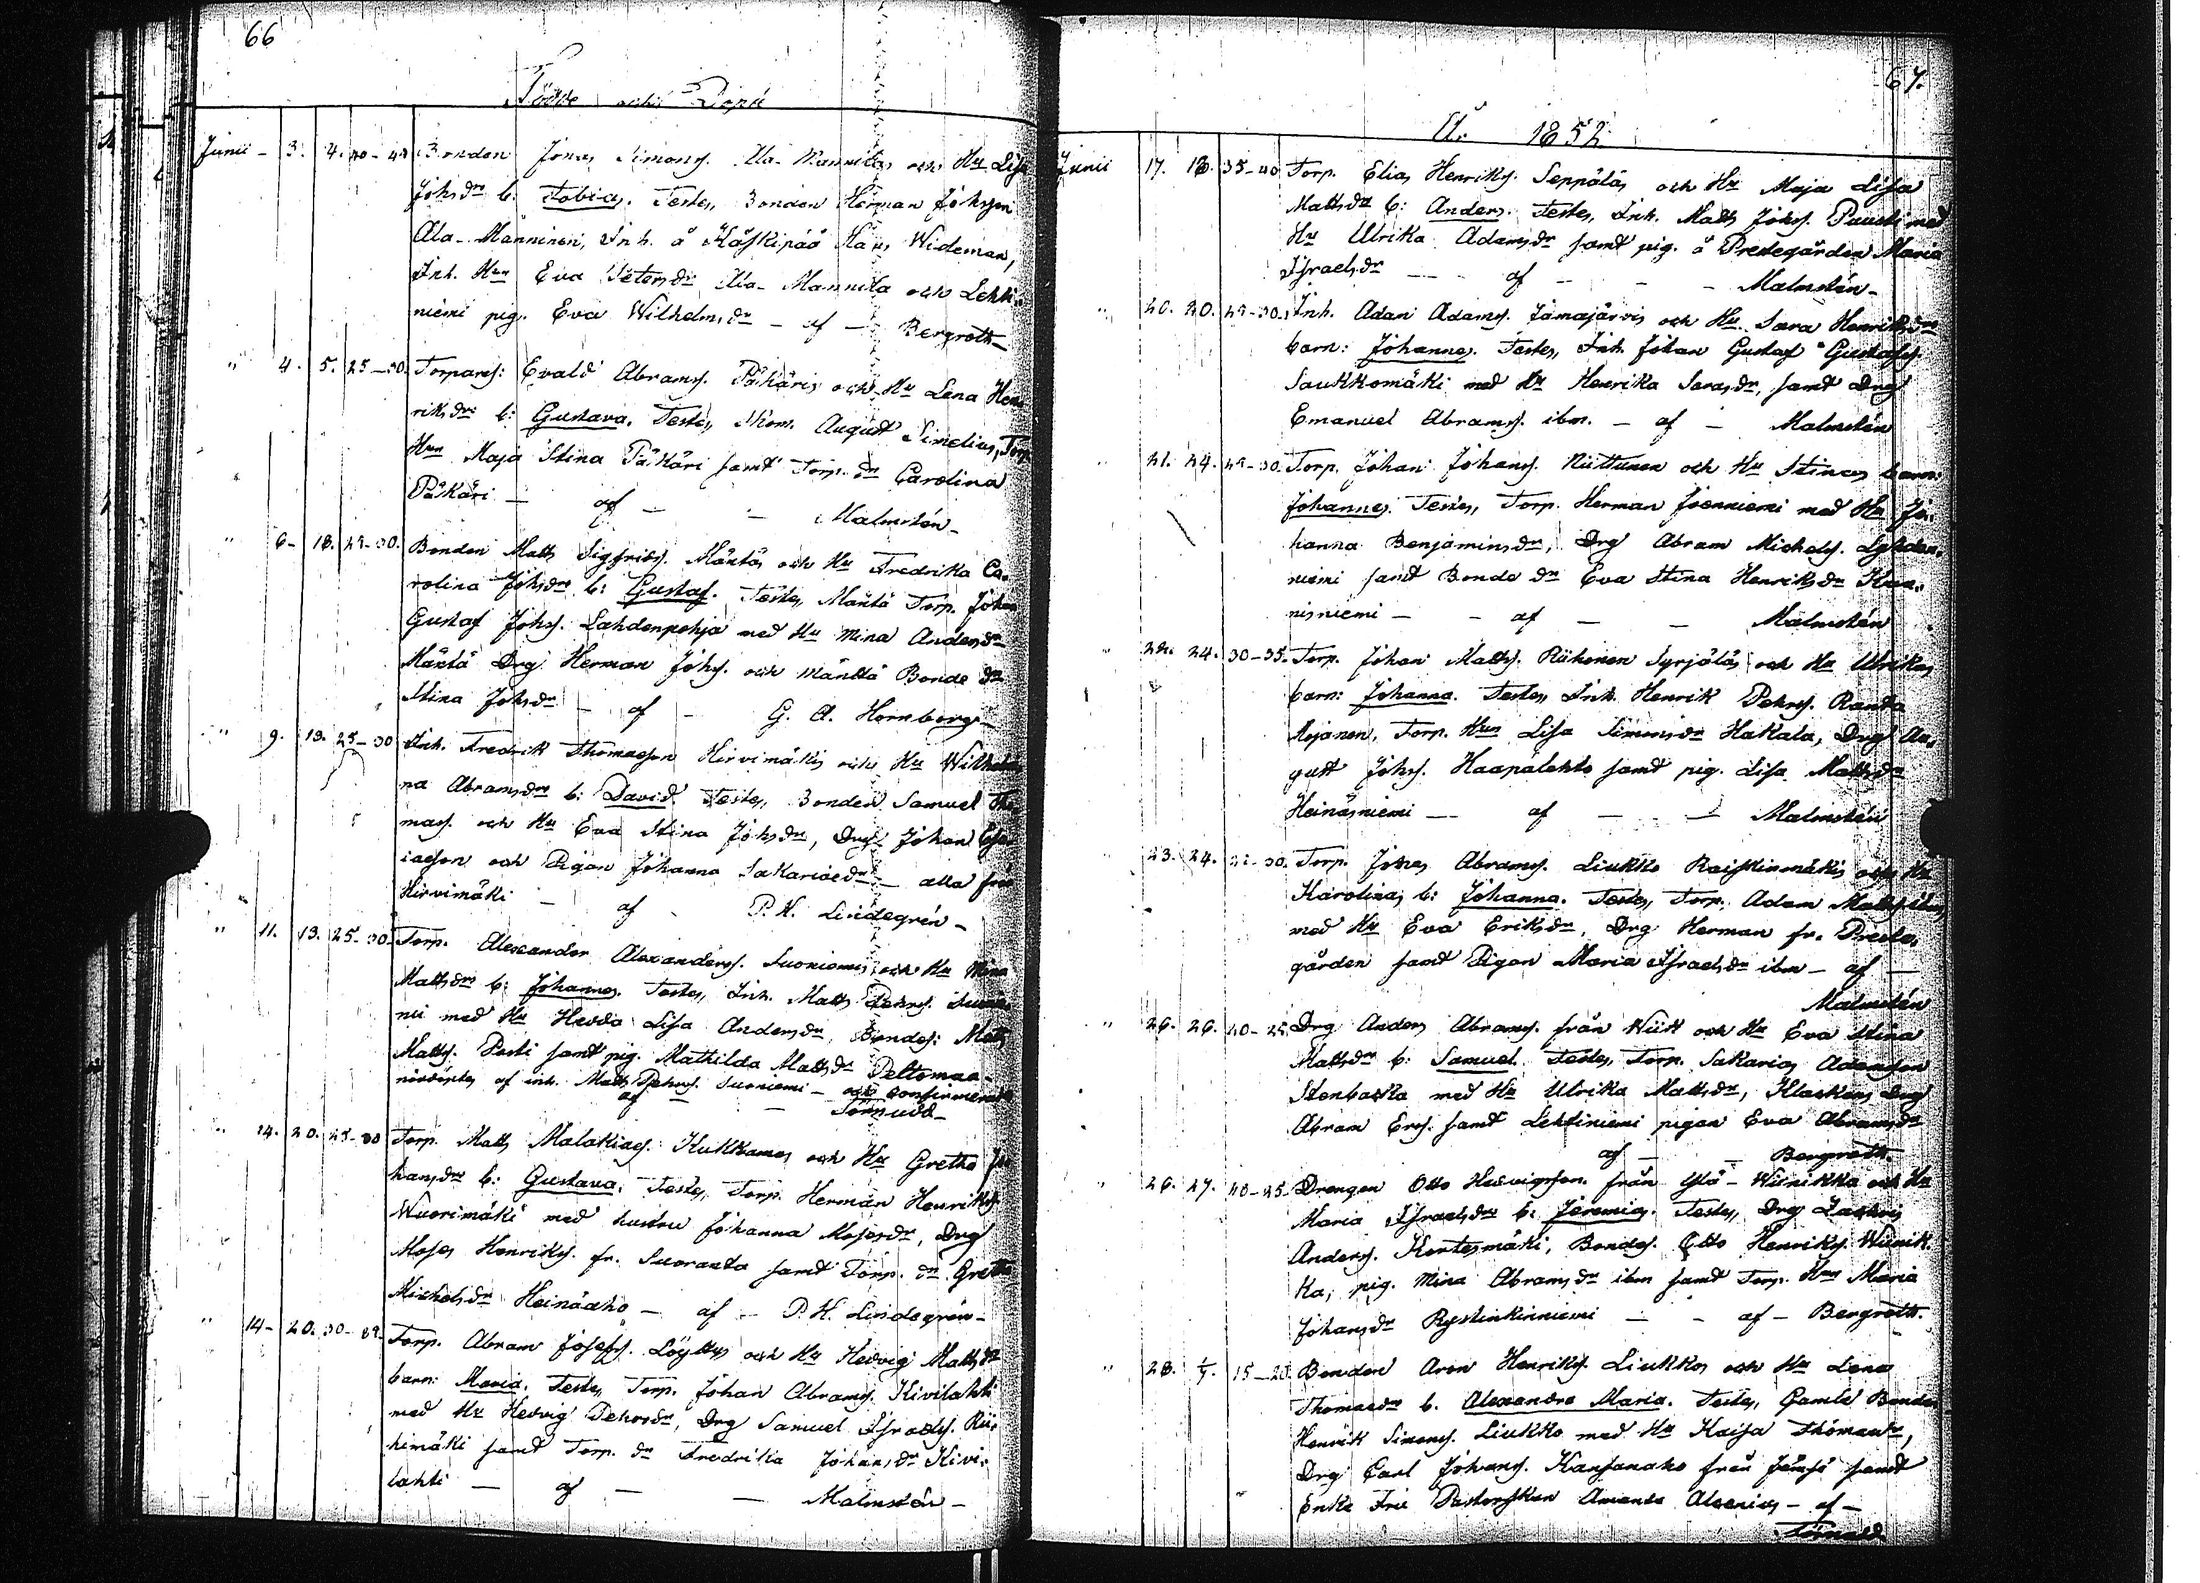 66
Födde och Döpte
Junii - 3. 4. 40-49 Bonden Jonas Simonss. Ala-Mannilas och Hu Lisa
Johsdrs b: Tobias. Testes, Bonden Herman Johsson
Ala-Manninen, Inh. å Käskipää Hans Wideman,
Inh. Hun Eva Petersdr Ala-Mannila och Lehti-
niemi pig. Eva Wilhelmsdr - af - Bergroth -
" 4. 5. 25-30. Torpares: Evald Abramss. Päkäris och Hu Lena Hen-
riksdrs b: Gustava. Testes, Skom. August Simelius, Torp.
Hun Maja Stina Päkäri samt Torp. dr Carolina
Päkäri - af - - Malmstén -
" 6- 18. 29-30. Bonden Matts Sigfridss. Mäntäs och Hu Fredrika Ca-
rolina Johsdrs b: Gustaf. Testes, Mäntä Torp. Johan
Gustaf Johss. Lahdenpohja med Hu Mina Andersdr
Mänttä Drg Herman Johss. och Mänttä Bonde dr
Stina Johsdr - af - G. A. Hornborg -
" 9. 13. 25-30 Inh. Fredrik Thomasson Hirvimäkis och Hu Wilhelmi-
na Abramsdrs b: David Testes, Bonden Samuel Tho-
mass. och Hu Eva Stina Johsdr, Drg Johan
iasson och Pigan Johanna Sakariaedr - alla från
Hirvimäki - af - P. H. Lindegrén -
" 11. 13. 25-30. Torp. Alexander Alexanderss. Suoniemis och Hu Mina
Mattsdrs b: Johannes. Testes, Inh. Matts Pehrss. Suonie-
mi med Hu Hedda Lisa Andersdr, Bondes: Matts
Mattss. Pesti samt pig. Mathilda Mattsdr Peltomaa -
nöddöptes af inh. Matts Pehrss. Suoniemi - och confirmerat
af - - Törnudd -
" 14. 20. 25-30 Torp. Matts Malakiass. Kukkamas och Hu Gretha Jo-
hansdrs b: Gustava. Testes, Torp. Herman Henrikss.
Wuorimäki med hustru Johanna Mosesdr, Drg
Moses Henrikss. fr. Suoranta samt Torp. dr Gretha
Michelsdr Heinäaho - af - P. H. Lindegrén -
" 14- 20. 30- Torp. Abram Josefss. Löyttys och Hu Hedvig Mattsdr
barn: Maria. Testes, Torp. Johan Abramss. Kivilahti
med Hu Hedvig Pehrsdr, Drg Samuel Israelss. Rii-
himäki samt Torp. dr Fredrika Johansdr Kivi-
lahti - af - - Malmstén -
67.
År 1852
Junii 17. 18. 35-40 Torp. Elias Henrikss. Seppäläs och Hu Maja Lisa
Mattsdrs b: Anders. Testes, Inh. Matts Johss. med
Hu Ulrika Adamsdr samt pig. å Prestegården Maria
Israelsdr - - af - - Malmstén -
" 20. 20. 29-30. Inh. Adam Adamss. Jämsjärvis och Hu Sara Henriksdrs
barn: Johannes. Testes, Inh. Johan Gustaf Gustafss.
Saukkomäki med Hu Henrika Sarasdr, samt Drg
Emanuel Abramss. ibm. - af - Malmstén
" 21. 24. 29-30. Torp. Johan Johanss. Niittunen och Hu Stinas barn:
Johannes. Testes, Torp. Herman Joenniemi med Hu Jo-
hanna Benjaminsdr, Drg Abram Michelss.
niemi samt Bonde dr Eva Stina Henriksdr
nisniemi - - af - - Malmstén
" 22. 24. 30-35. Torp. Johan Mattss. Riihonen Syrjäläs och Hu Ulrikas
barn: Johanna. Testes, Inh. Henrik Pehrss. Ranta
Aojanen, Torp. Hun Lisa Simonsdr Hakala, Drg Au-
gust Johss. Haapalehto samt pig. Lisa Mattsdr
Heinäsniemi - af - - Malmstén
" 23. 24. Torp. Jonas Abramss. Liukko Raiskinmäkis och Hu
Karolinas b: Johanna. Testes, Torp. Adam Mattss. ibm,
med Hu Eva Eriksdr, Drg Herman fr. Preste-
gården samt Pigan Maria Israelsdr ibm - af -
Malmstén
" 26. 26. 20-25. Drg Anders Abramss. från Wiik och Hu Eva Stina
Mattsdrs b: Samuel. Testes, Torp. Sakarias Adamsson
Stenbacka med Hu Ulrika Mattsdr, Drg
Abram Erss. samt Lehtiniemi pigan Eva Abramsdr
af - - Bergroth -
" 26. 27. 20-25. Drengen Otto Hedvigsson från Ylä-Wiinikka och Hu
Maria Israelsdrs b: Jeremias. Testes, Drg Zachris
Anderss. Kortesmäki, Bondes. Otto Henrikss. Wiinik-
ka, pig. Mina Abramsdr ibm samt Torp. Hun Maria
Johansdr Rystinkinniemi - - af - Bergroth.
" 28. 1/7. 15-20. Bonden Aron Henrikss. Liukkos och Hu Lena
Thomasdrs b. Alexandra Maria. Testes, Gamle Bonden
Henrik Simonss. Liukko med Hu Kaisa Thomasdr,
Drg Carl Johanss. Kansanaho från Jämsä samt
Enke Fru Pastorskan Amanda Alcenius - af -
Törnudd